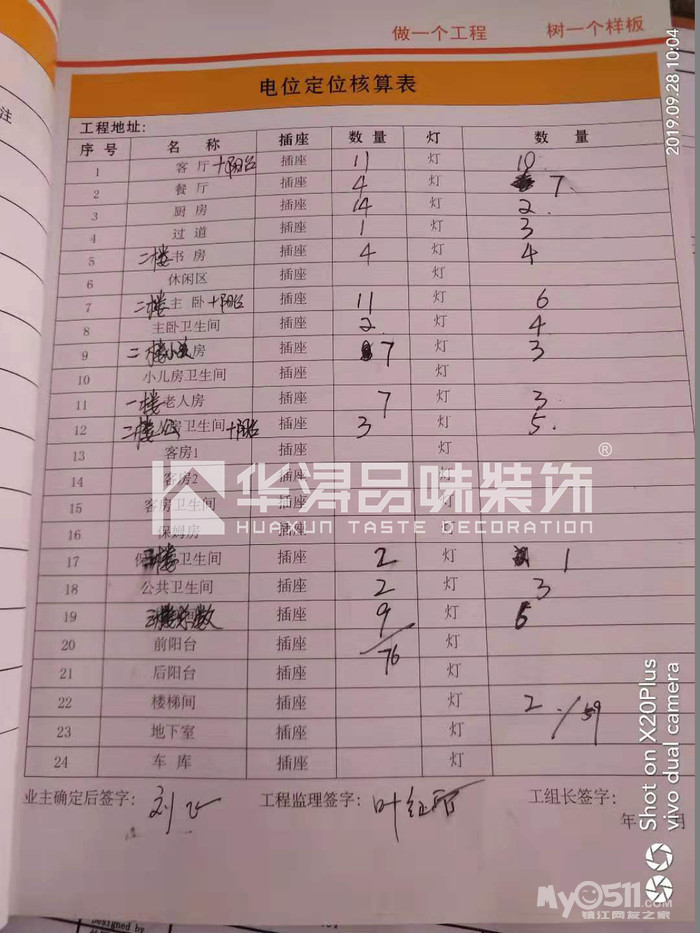 做一个工程 树一个样板
2019.09.28 10:04
电位定位核算表
注
工程地址:
序号 名称 插座 数量 灯 数量
1 客厅+阳台 插座 11 灯 10
2 餐厅 插座 4 灯 7
3 厨房 插座 14 灯 2
4 过道 插座 1 灯 3
5 二楼书房 插座 4 灯 4
6 休闲区 插座 灯
7 二楼主卧+阳台 插座 11 灯 6
8 主卧卫生间 插座 2 灯 4
9 二楼小房 插座 7 灯 3
10 小儿房卫生间 插座 灯
11 一楼老人房 插座 7 灯 3
12 二楼房卫生间+阳台 插座 3 灯 5
13 客房1 插座 灯
14 客房2 插座 灯
华浔品味装饰®
HUAXUN TASTE DECORATION
15 客房卫生间 插座 灯
16 保姆房 插座 灯
17 卫生间 插座 2 灯 1
18 公共卫生间 插座 2 灯 3
19 插座 9 灯 6
20 前阳台 插座 76 灯
21 后阳台 插座 灯
22 楼梯间 插座 灯 2 59
23 地下室 插座 灯
24 车库 插座 灯
业主确定后签字: 刘 工程监理签字: 叶 工组长签字:
年 月
Shot on X20Plus
vivo dual camera
My0511.com
镇江网友之家
Designed by